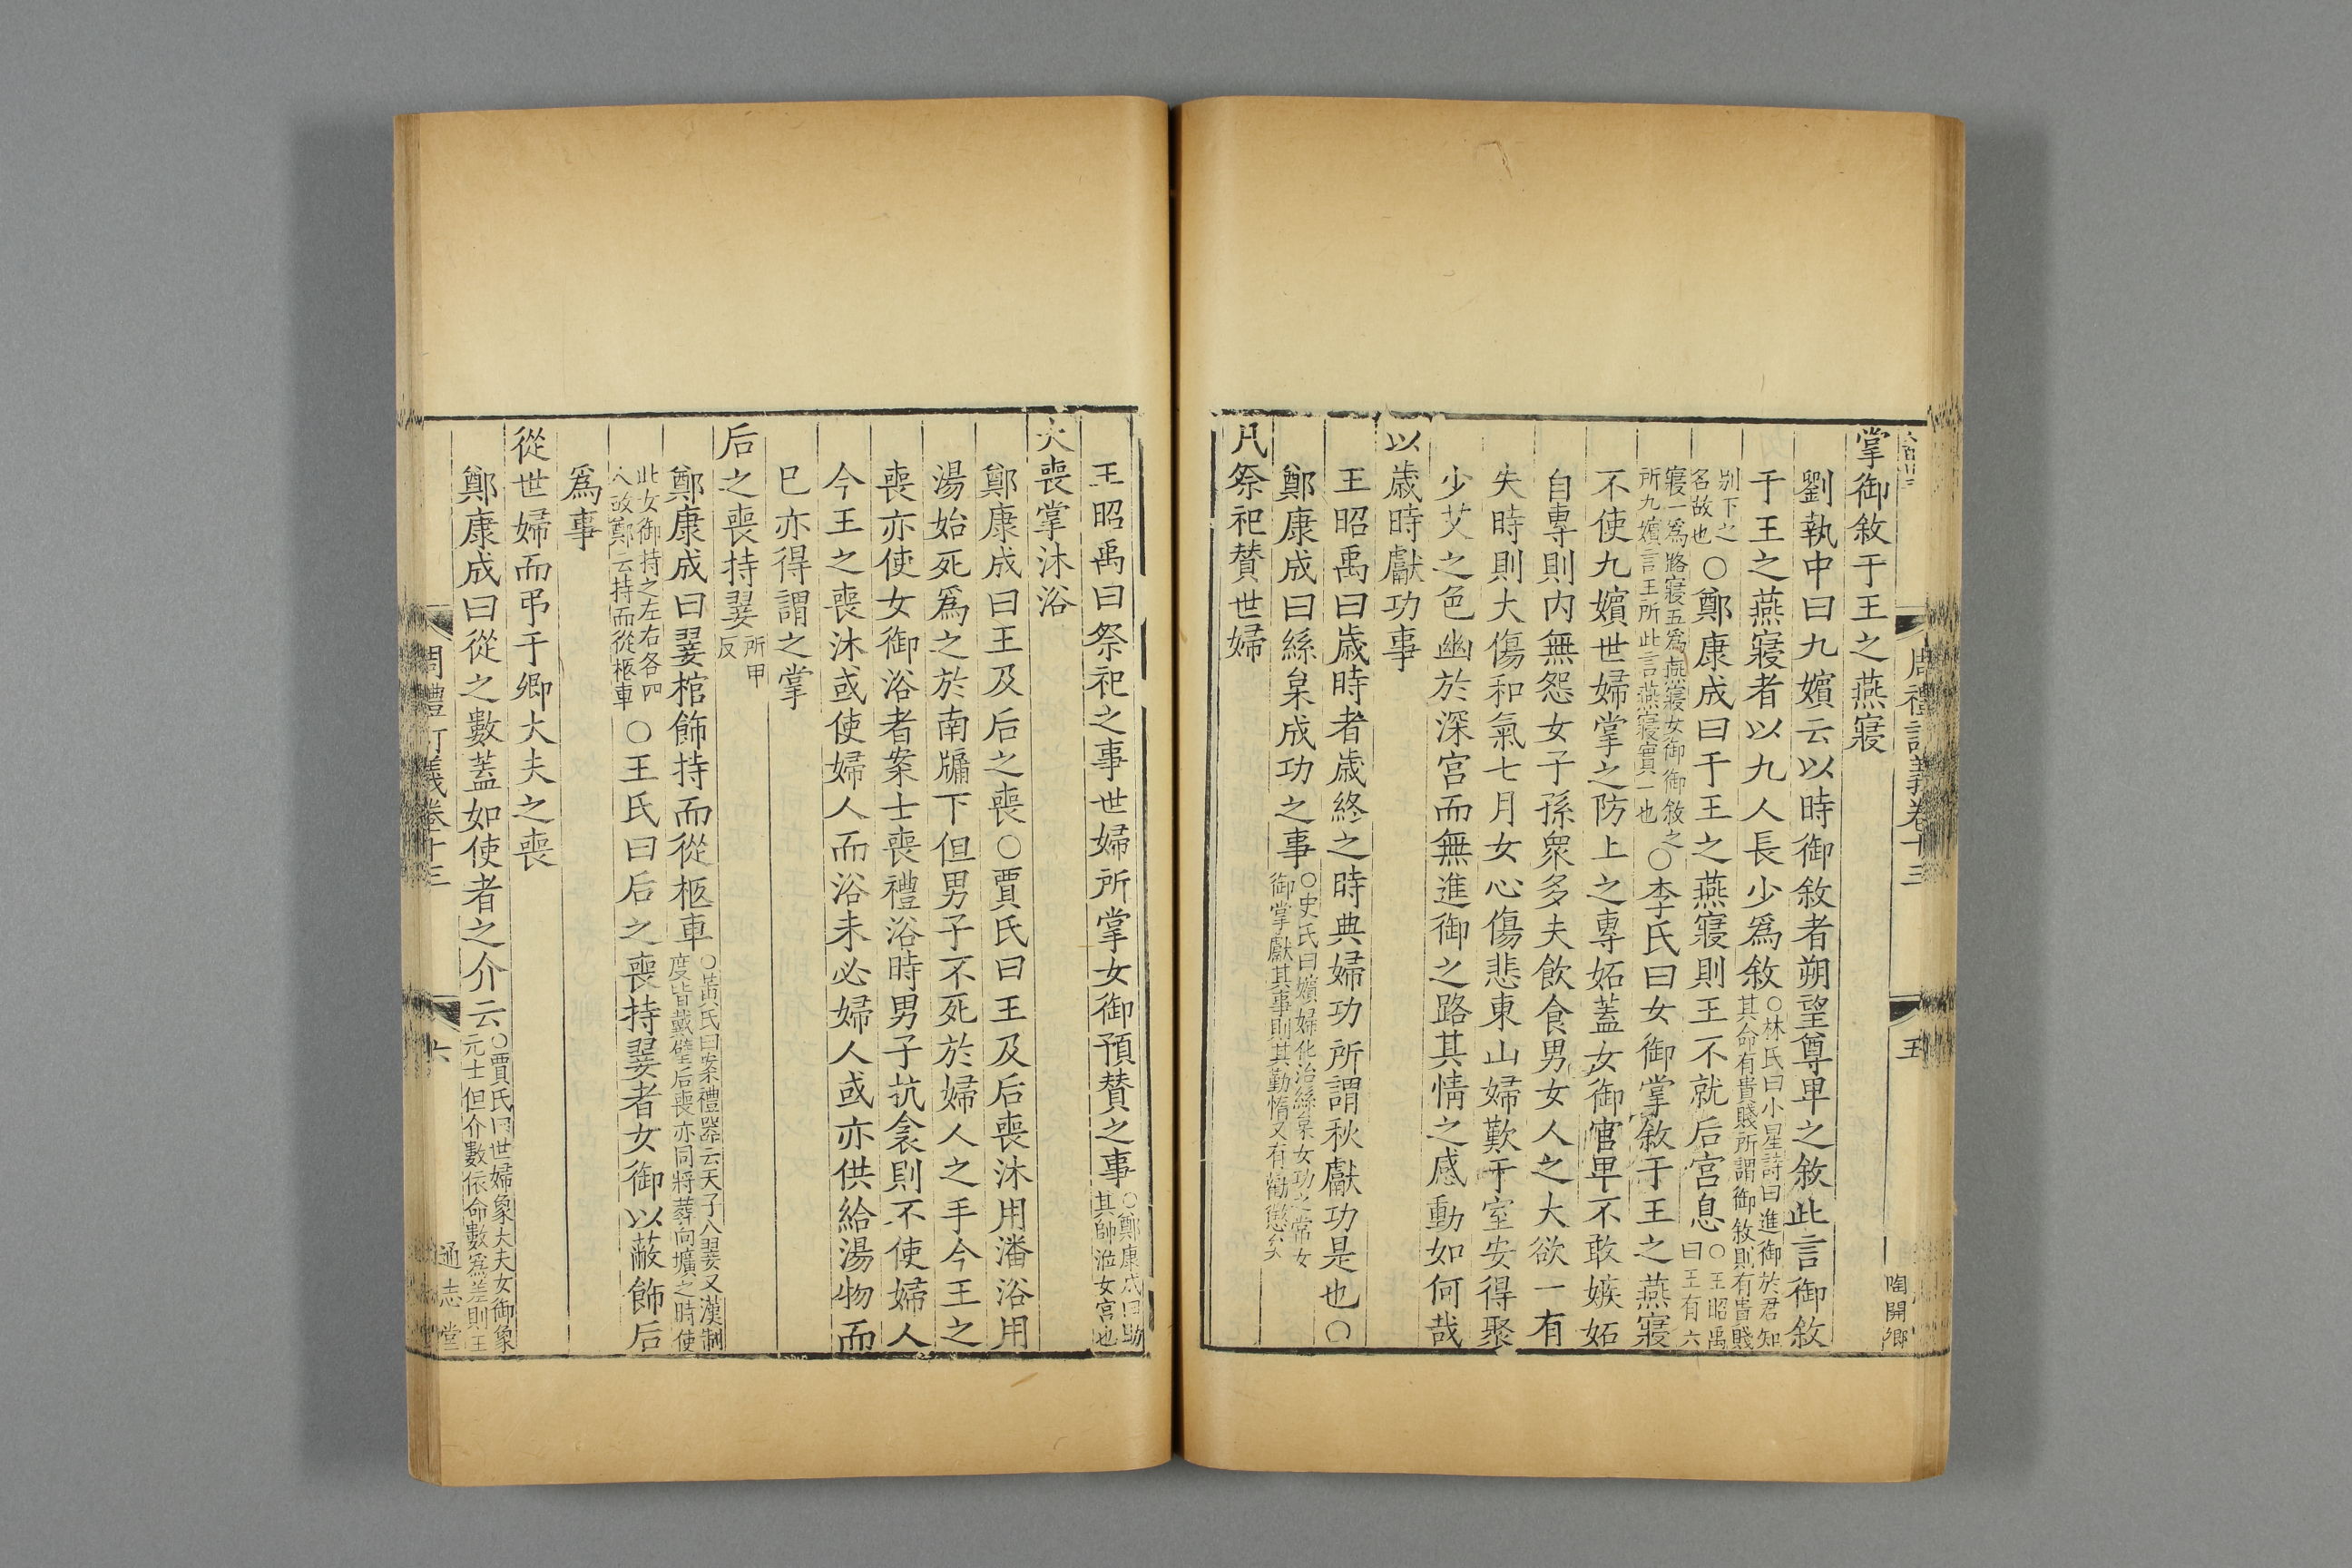 周禮訂義卷十三
五
陶開鄉
掌御敘于王之燕寢
劉執中曰九嬪云以時御敘者朔望尊卑之敘此言御敘
于王之燕寢者以九人長少爲敘○林氏曰小星詩曰進御於君知
其命有貴賤所謂御敘則有貴賤
別下之
名故也○鄭康成曰于王之燕寢則王不就后宮息○王昭禹
曰王有六
寢一爲路寢五爲燕寢女御御敘之
所九嬪言王所此言燕寢實一也○李氏曰女御掌敘于王之燕寢
不使九嬪世婦掌之防上之專妬蓋女御官卑不敢嫉妬
自專則内無怨女子孫衆多夫飲食男女人之大欲一有
失時則大傷和氣七月女心傷悲東山婦歎于室安得聚
少艾之色幽於深宮而無進御之路其情之感動如何哉
以歲時獻功事
王昭禹曰歲時者歲終之時典婦功所謂秋獻功是也○
鄭康成曰絲枲成功之事○史氏曰嬪婦化治絲枲女功之常女
御掌獻其事則其勤惰又有勸懲矣
凡祭祀贊世婦
王昭禹曰祭祀之事世婦所掌女御預贊之事○鄭康成曰助
其帥涖女宮也
大喪掌沐浴
鄭康成曰王及后之喪○賈氏曰王及后喪沐用潘浴用
湯始死爲之於南牖下但男子不死於婦人之手今王之
喪亦使女御浴者案士喪禮浴時男子抗衾則不使婦人
今王之喪沐或使婦人而浴未必婦人或亦供給湯物而
巳亦得謂之掌
后之喪持翣所甲
反
鄭康成曰翣棺飾持而從柩車○黃氏曰案禮器云天子八翣又漢制
度皆戴璧后喪亦同將葬向壙之時使
此女御持之左右各四
人故鄭云持而從柩車○王氏曰后之喪持翣者女御以蔽飾后
爲事
從世婦而弔于卿大夫之喪
鄭康成曰從之數蓋如使者之介云○賈氏曰世婦象大夫女御象
元士但介數依命數爲差則王
周禮訂義卷十三
六
通志堂